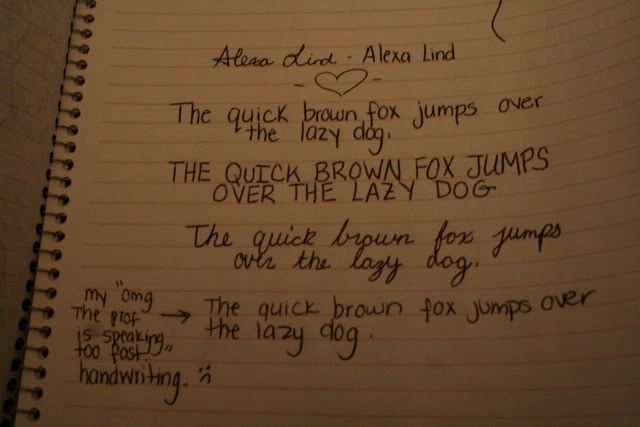 Alexa Lind - Alexa Lind
The quick brown fox jumps over
the lazy dog.
THE QUICK BROWN FOX JUMPS
OVER THE LAZY DOG
The quick brown fox jumps
over the lazy dog.
my "omg
the prof
is speaking
too fast"
handwriting. :(
→ The quick brown fox jumps over
the lazy dog.